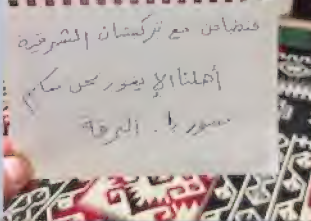 متضامن مع تركستان الشرقية
أهلنا الإيغور نحن معكم
سوريا. الرقة